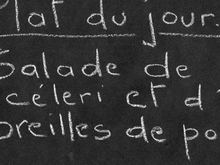 Plat du jour
Salade de
céleri et d'
oreilles de po